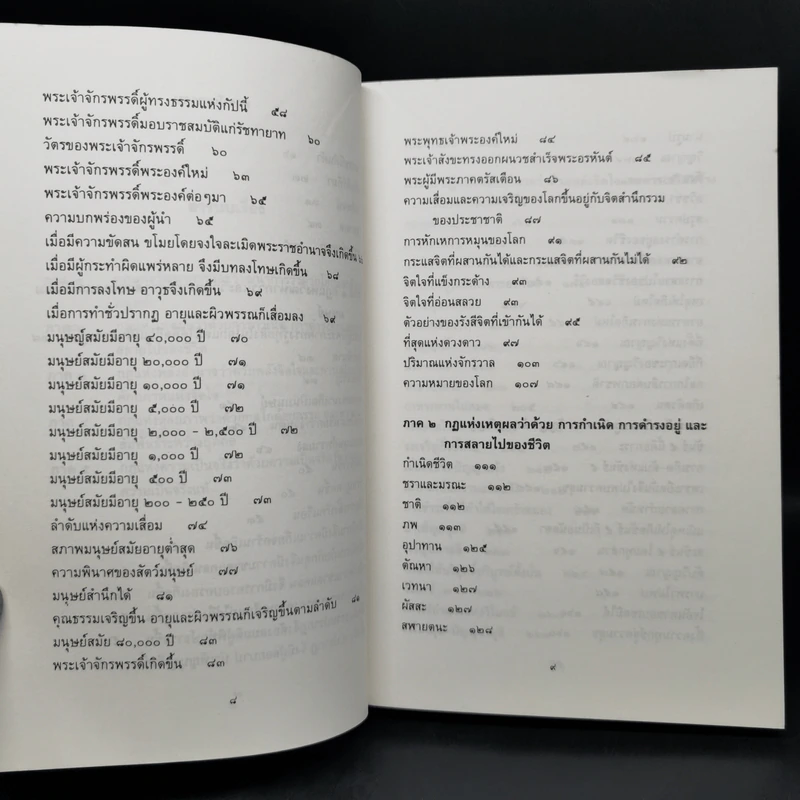 พระเจ้าจักรพรรดิ์ผู้ทรงธรรมแห่งกัปนี้ ๕๘
พระเจ้าจักรพรรดิ์มอบราชสมบัติแก่รัชทายาท ๖๐
วัตรของพระเจ้าจักรพรรดิ์ ๖๐
พระเจ้าจักรพรรดิ์พระองค์ใหม่ ๖๓
พระเจ้าจักรพรรดิ์พระองค์ต่อๆมา ๖๕
ความบกพร่องของผู้นำ ๖๕
เมื่อมีความขัดสน ขโมยโดยจงใจละเมิดพระราชอำนาจจึงเกิดขึ้น
เมื่อมีผู้กระทำผิดแพร่หลาย จึงมีบทลงโทษเกิดขึ้น ๖๘
เมื่อมีการลงโทษ อาวุธจึงเกิดขึ้น ๖๙
เมื่อการทำชั่วปรากฏ อายุและผิวพรรณก็เสื่อมลง ๖๙
มนุษย์สมัยมีอายุ ๔๐,๐๐๐ ปี ๗๐
มนุษย์สมัยมีอายุ ๒๐,๐๐๐ ปี ๗๑
มนุษย์สมัยมีอายุ ๑๐,๐๐๐ ปี ๗๑
มนุษย์สมัยมีอายุ ๕,๐๐๐ ปี ๗๒
มนุษย์สมัยมีอายุ ๒,๐๐๐ - ๒,๕๐๐ ปี ๗๒
มนุษย์สมัยมีอายุ ๑,๐๐๐ ปี ๗๒
มนุษย์สมัยมีอายุ ๕๐๐ ปี ๗๓
มนุษย์สมัยมีอายุ ๒๐๐ - ๒๕๐ ปี ๗๓
ลำดับแห่งความเสื่อม ๗๔
สภาพมนุษย์สมัยอายุต่ำสุด ๗๖
ความพินาศของสัตว์มนุษย์ ๗๗
มนุษย์สำนึกได้ ๘๑
คุณธรรมเจริญขึ้น อายุและผิวพรรณก็เจริญขึ้นตามลำดับ ๘๑
มนุษย์สมัย ๘๐,๐๐๐ ปี ๘๓
พระเจ้าจักรพรรดิ์เกิดขึ้น ๘๓
๘
พระพุทธเจ้าพระองค์ใหม่ ๘๔
พระเจ้าสังขะทรงออกผนวชสำเร็จพระอรหันต์ ๘๕
พระผู้มีพระภาคตรัสเตือน ๘๖
ความเสื่อมและความเจริญของโลกขึ้นอยู่กับจิตสำนึกรวม
ของประชาชาติ ๘๗
การหักเหการหมุนของโลก ๙๑
กระแสจิตที่ผสานกันได้และกระแสจิตที่ผสานกันไม่ได้ ๙๒
จิตใจที่แข็งกระด้าง ๙๓
จิตใจที่อ่อนสลวย ๙๓
ตัวอย่างของรังสีจิตที่เข้ากันได้ ๙๕
ที่สุดแห่งดวงดาว ๙๗
ปริมาณแห่งจักรวาล ๑๐๓
ความหมายของโลก ๑๐๗
ภาค ๒ กฏแห่งเหตุผลว่าด้วย การกำเนิด การดำรงอยู่ และ
การสลายไปของชีวิต
กำเนิดชีวิต ๑๑๑
ชราและมรณะ ๑๑๒
ชาติ ๑๑๒
ภพ ๑๑๓
อุปาทาน ๑๒๕
ตัณหา ๑๒๖
เวทนา ๑๒๗
ผัสสะ ๑๒๗
สฬายตนะ ๑๒๘
๙